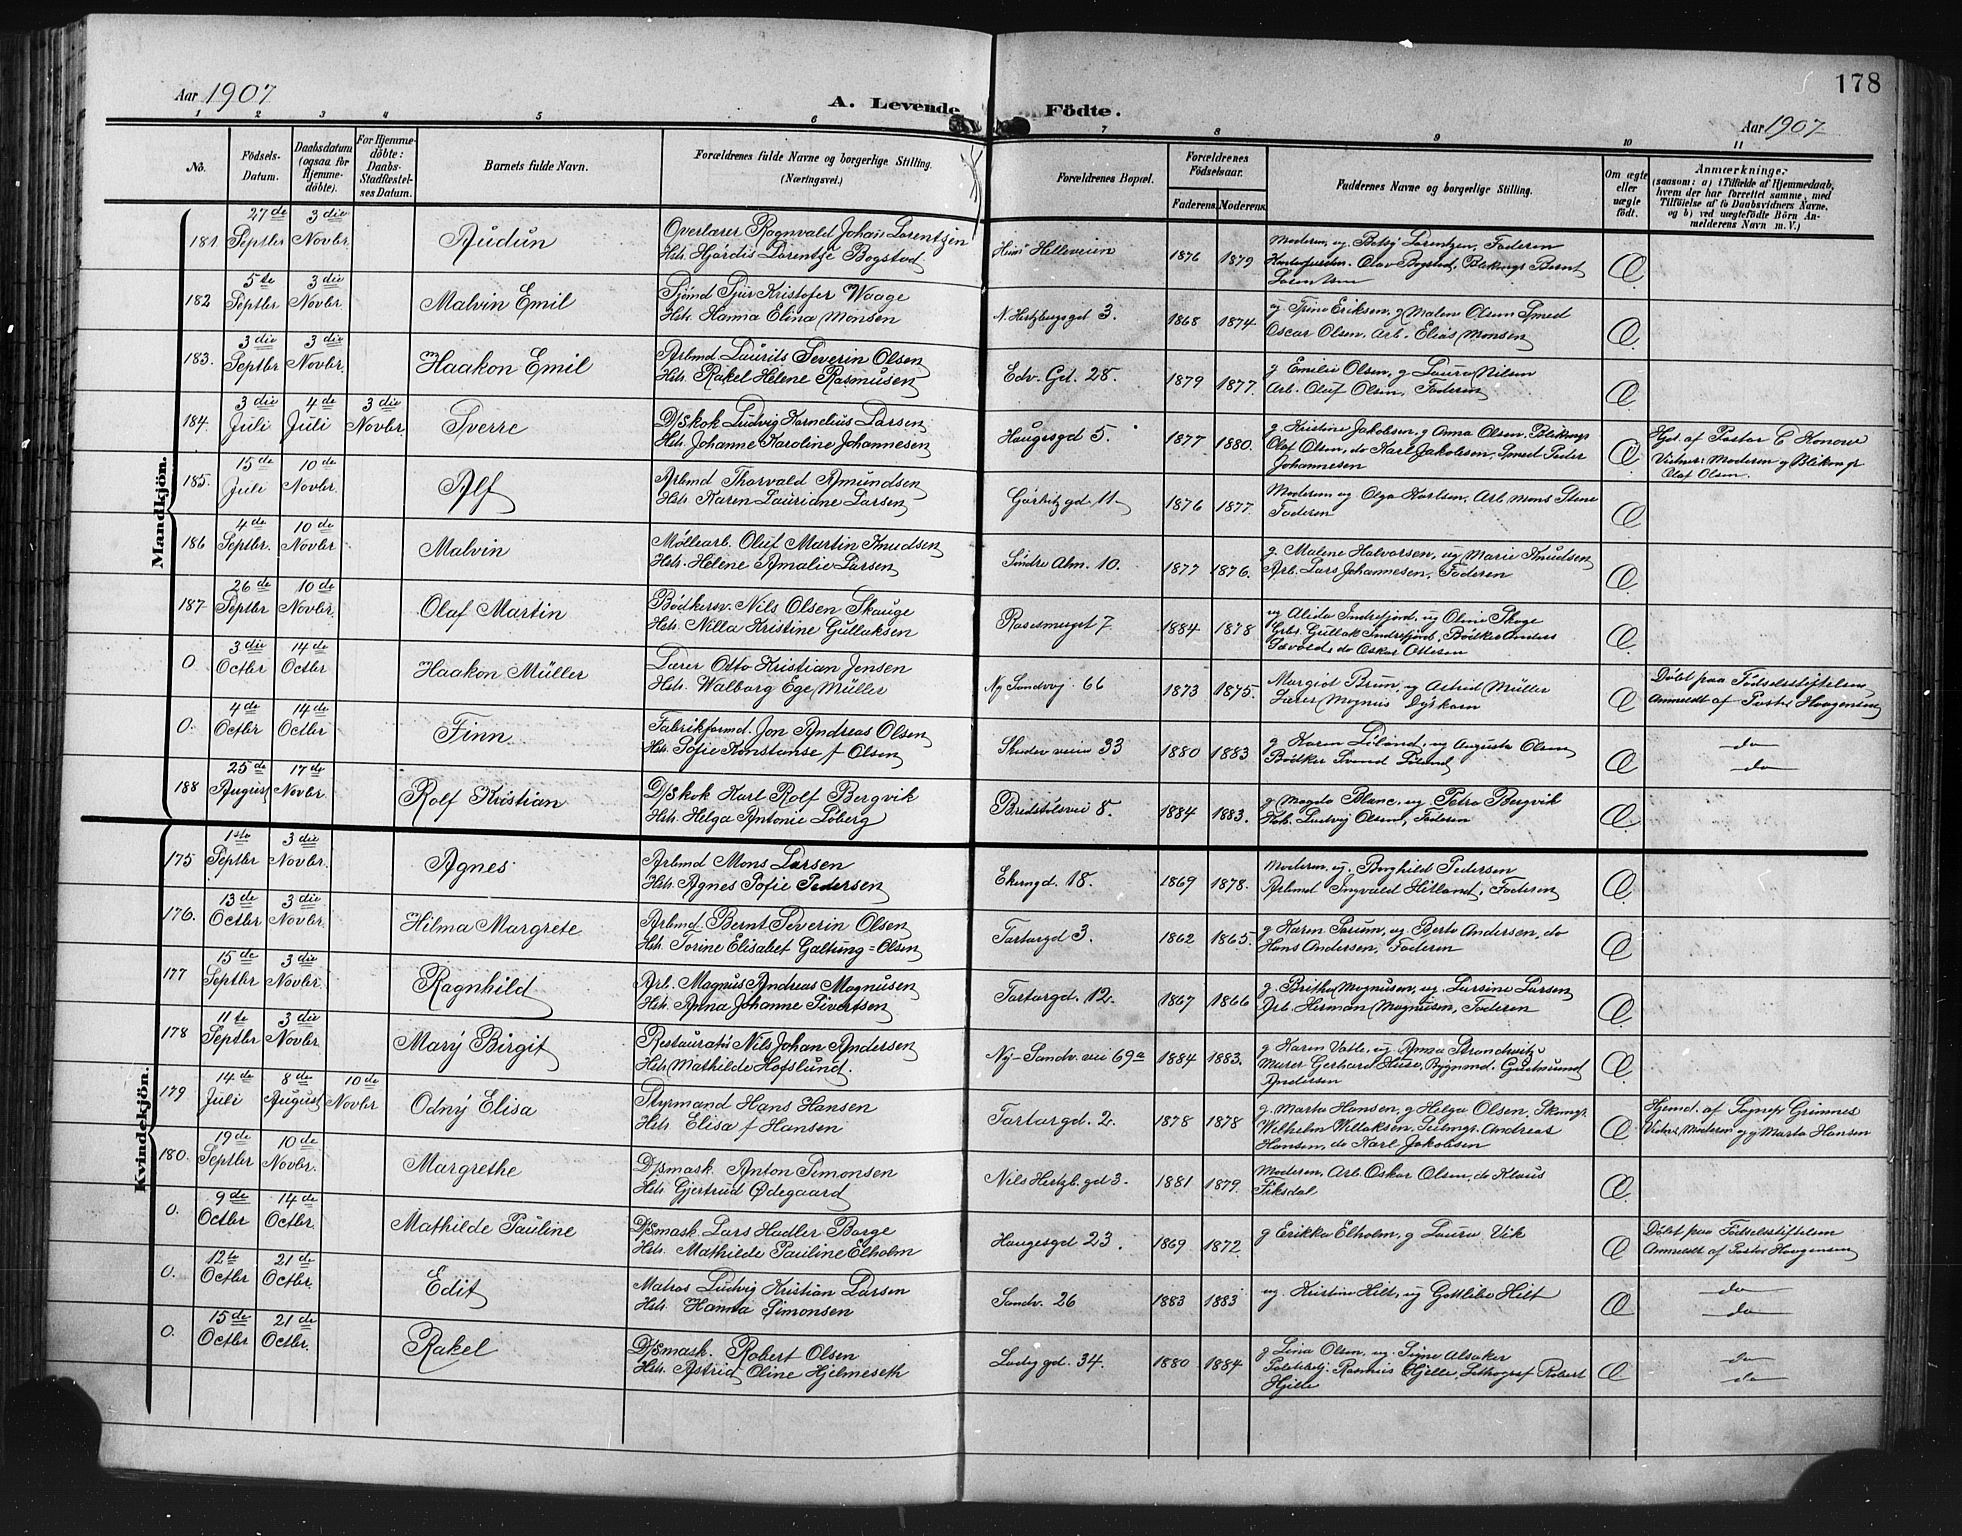 178
Aar 1907
A. Levende Födte.
Aar 1907
1 2 3 4 5 6 7 8 9 10 11
No.
Födsels-Datum.
Daabsdatum (ogsaa for Hjemme-döbte).
For Hjemme-döbte: Daabs-Stadfæstel-ses Datum.
Barnets fulde Navn.
Forældrenes fulde Navne og borgerlige Stilling. (Næringsvei.)
Forældrenes Bopæl.
Forældrenes Födselsaar.
Faderens. Moderens.
Faddernes Navne og borgerlige Stilling.
Om ægte eller uægte födt.
Anmærkninger
(saasom: a) i Tilfælde af Hjemmedaab,
hvem der har forrettet samme, med
Tilföielse af to Daabsvidners Navne.
og b) ved uægtefödte Börn An-
melderens Navn m. V.)
Mandkjön.
181 27de Septbr 3die Novbr. Audun
Overlærer Ragnvald Johan Lorentzen
Hst. Hjördis Lorentze Bogstad
Helleveien 1876 1879
Moderen, ug Betsy Lorentzen, Faderen
Olav Bogstad, Bernt
Œ
182 5te Septbr 3die Novbr. Malvin Emil
Sjømd Sjur Kristofer Waage
Hst. Hanna Elina Monsen
N. Hertzbergsgd 3. 1868 1874
ug Trine Eriksen, g Malene Olsen Smed
Oscar Olsen, Arb. Elias Monsen
Œ
183. 3die Septbr 3die Novbr. Haakon Emil
Arbmd Laurits Severin Olsen
Hst. Rakel Helene Rasmusen
Edv. Gd. 28. 1879 1877.
g Emilie Olsen, g Laura Nilsen
Arb. Oluf Olsen, Faderen
Œ
184. 3die Juli 4de Juli 3die Novbr. Sverre
D/Skok Ludvig Kornelius Larsen
Hst. Johanne Karoline Johannesen
Haugesgd 5. 1877 1880.
g. Kristine Jakobsen, g Anna Olsen, Blikkngs
Olaf Olsen, do Karl Jakobsen, Smed Peder
Johannesen
Œ
Hjd. af Pastor C Konow
Vidner: Moderen g Blikensl
Olaf Olsen.
185. 15de Juli 10de Novbr. Alf
Arbmd Thorvald Amundsen
Hst. Karen Lauriane Larsen
Görbitz gd 11. 1876 1877.
Moderen ug Olga Karlsen, Arb Mons Stene
Faderen
Œ
186 4de Septbr. 10de Novbr. Malvin
Møllearb. Oluf Martin Knudsen
Hst. Helene Amalie Larsen
Søndre Alm. 10. 1877 1876.
g. Malene Halvorsen, ug Marie Knudsen
Arb. Lars Johannesen, Faderen
Œ
187 26de Septbr 10de Novbr. Olaf Martin
Bödkersv. Nils Olsen Skauge
Hst. Nilla Kristine Gullaksen
7. 1884 1878
ug Alida Indrefjord, ug Oline Skoge
Grbr. Gullak Indrefjord, Bödker Anders
Sævold, do Oskar Ottesen
Œ
0. 3die Octbr 14de Octbr Haakon Müller
Lærer Otto Kristian Jensen
Hst. Walborg Ege Müller
Ny Sandvvj 66 1873 1875.
Margit Brun, ug Astrid Müller
Lærer Magnus Dyrkorn
Œ
Döbt paa Fødselsstiftelsen
Anmeldt af Pastor Haagensen
0. 4de Octbr 14de Octbr Finn
Fabrikformd. Jon Andreas Olsen
Hst. Sofie Konstanse f Olsen
Skudev veien 33 1880 1883
g Karen Löland, ug Augusta Olsen
Bødker Svend Löland
Œ
do
do
188 25de August 17de Novbr. Rolf Kristian
D/Skok Karl Rolf Bergvik
Hst. Helga Antonie Loberg
8. 1884 1883.
g Magda Blanc, ug Petra Bergvik
Ludvig Olsen, Faderen
Œ
Kvindekjön.
175 1ste Septbr 3die Novbr. Agnes
Arbmd Mons Larsen
Hst. Agnes Sofie Pedersen
Ekerngd. 18. 1869 1878.
Moderen, ug. Borghild Pedersen
Arbmd Ingvald Hitland, Faderen
Œ
176. 13de Octbr 3die Novbr. Hilma Margrete
Arbmd. Bernt Severin Olsen
Hst. Torine Elisabet Galtung=Olsen
Tartargd 3. 1862 1865.
g Karen Sørum, ug Berta Andersen, do
Hans Andersen, Faderen
Œ
177 15de Septbr 3die Novbr. Ragnhild
Arb. Magnus Andreas Magnusen
Hst. Anna Johanne Sivertsen
Tartargd. 12. 1867 1866
g Britha Magnusen, ug. Larsine Larsen
Arb. Herman Magnusen, Faderen
Œ
178 11te Septbr 3die Novbr. Marÿ Birgit
Restauratø Nils Johan Andersen
Hst. Mathilde Hofslund.
Ny-Sandv. vei 69a 1884 1883.
g Karen Vatle, ug Anna
Murer Gerhard Huse, Bygnmd. Gudmund
Andersen
Œ
179 14de Juli 8de August 10de Novbr Odnÿ Elisa
Styrmand Hans Hansen
Hst. Elisa f Hansen
Tartargd. 2. 1878 1878
g. Marta Hansen, g Helga Olsen,
Wilhelm Willaksen, Seilmgr. Andreas
Hansen, do Karl Jakobsen
Œ
Hjemd. af Sognepr Grimnes
Vidner Moderen og g Marta Hansen
180. 19de Septbr 10de Novbr. Margrethe
D/Smask. Anton Simonsen
Hst. Gjertrud Ødegaard
Nils Hertzb. gd 3. 1881 1879.
Moderen, Arb. Oskar Olsen, do Klaus
Fiksdal
Œ
0. 9de Octbr 14de Octbr. Mathilde Pauline
D/Smask. Lars Hadler Borge
Hst. Mathilde Pauline Elholm
Haugesgd 23. 1869 1872.
g Erikka Elholm, g Laura Vik
Œ
Döbt paa Fødselsstiftelsen
Anmeldt af Pastor Haagensen
0. 12te Octbr 21de Octbr. Edit
Matros Ludvig Kristian Larsen
Hst. Hanna Simonsen
Sandv. 26 1883 1883
ug. Kristine Hilt, ug Gottlibe Hilt
Œ
do
do
0. 15de Octbr 21de Octbr. Rakel
D/Smask. Robert Olsen
Hst. Astrid Oline Hjelmeseth
Ladeg gd. 34. 1880 1884
g Lina Olsen, ug. Signe Alsaker
Rasmus Hjelle, Lithograf Robert
Hjelle
Œ
do
do